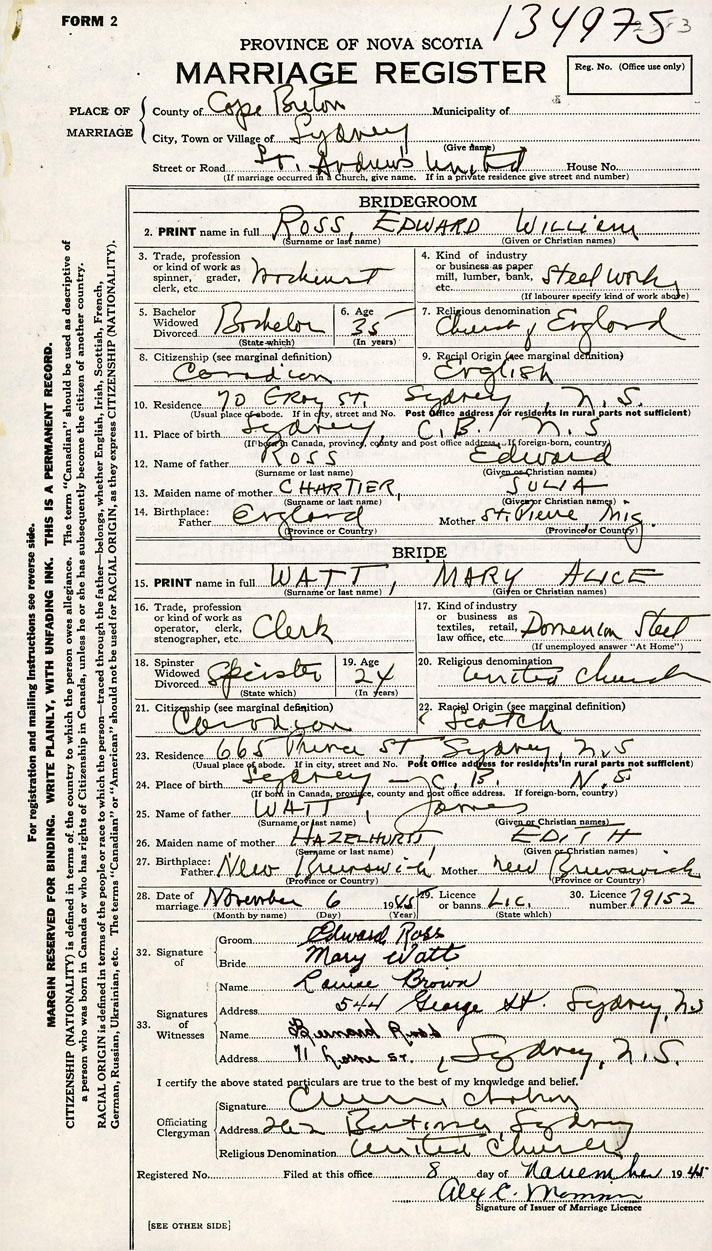 FORM 2
134975
PROVINCE OF NOVA SCOTIA
MARRIAGE REGISTER
Reg. No. (Office use only)
PLACE OF MARRIAGE
County of Cape Breton Municipality of
City, Town or Village of Sydney
(Give name)
Street or Road St. Andrew's United House No.
(If marriage occurred in a Church, give name. If in a private residence give street and number)
BRIDEGROOM
2. PRINT name in full ROSS, EDWARD WILLIAM
(Surname or last name) (Given or Christian names)
3. Trade, profession or kind of work as spinner, grader, clerk, etc. Machinist
4. Kind of industry or business as paper mill, lumber, bank, etc. Steel work
(If labourer specify kind of work above)
5. Bachelor Widowed Divorced Bachelor
(State which)
6. Age 35
(In years)
7. Religious denomination Church of England
8. Citizenship (see marginal definition) Canadian
9. Racial Origin (see marginal definition) English
10. Residence 70 Gray St. Sydney, N.S.
(Usual place of abode. If in city, street and No. Post Office address for residents in rural parts not sufficient)
11. Place of birth Sydney, C.B. N.S
(If born in Canada, province, county and post office address. If foreign-born, country)
12. Name of father ROSS Edward
(Surname or last name) (Given or Christian names)
13. Maiden name of mother CHARTIER, JULIA
(Surname or last name) (Given or Christian names)
14. Birthplace: Father England Mother St. Pierre, Miq.
(Province or Country) (Province or Country)
BRIDE
15. PRINT name in full WATT, MARY ALICE
(Surname or last name) (Given or Christian names)
16. Trade, profession or kind of work as operator, clerk, stenographer, etc. Clerk
17. Kind of industry or business as textiles, retail, law office, etc. Dominion Steel
(If unemployed answer "At Home")
18. Spinster Widowed Divorced Spinster
(State which)
19. Age 24
(In years)
20. Religious denomination United Church
21. Citizenship (see marginal definition) Canadian
22. Racial Origin (see marginal definition) Scotch
23. Residence 665 Prince St, Sydney, N.S
(Usual place of abode. If in city, street and No. Post Office address for residents in rural parts not sufficient)
24. Place of birth Sydney - C.B. N.S
(If born in Canada, province, county and post office address. If foreign-born, country)
25. Name of father WATT, James
(Surname or last name) (Given or Christian names)
26. Maiden name of mother HAZELHURST EDITH
(Surname or last name) (Given or Christian names)
27. Birthplace: Father New Brunswick Mother New Brunswick
(Province or Country) (Province or Country)
28. Date of marriage November 6 1945
(Month by name) (Day) (Year)
29. Licence or banns Lic.
(State which)
30. Licence number 79152
32. Signature of
Groom Edward Ross
Bride Mary Watt
33. Signatures of Witnesses
Name Louise Brown
Address 544 George St. Sydney, N.S
Name Bernard Ross
Address 71 Lorne St., Sydney, N.S.
I certify the above stated particulars are true to the best of my knowledge and belief.
Officiating Clergyman
Signature
Address 262 Sydney
Religious Denomination United Church
Registered No. Filed at this office 8 day of November 1945
Alex C.
Signature of Issuer of Marriage Licence
[SEE OTHER SIDE]
For registration and mailing instructions see reverse side.
MARGIN RESERVED FOR BINDING. WRITE PLAINLY, WITH UNFADING INK. THIS IS A PERMANENT RECORD.
CITIZENSHIP (NATIONALITY) is defined in terms of the country to which the person owes allegiance. The term "Canadian" should be used as descriptive of
a person who was born in Canada or who has rights of Citizenship in Canada, unless he or she has subsequently become the citizen of another country.
RACIAL ORIGIN is defined in terms of the people or race to which the person—traced through the father—belongs, whether English, Irish, Scottish, French,
German, Russian, Ukrainian, etc. The terms "Canadian" or "American" should not be used for RACIAL ORIGIN, as they express CITIZENSHIP (NATIONALITY).